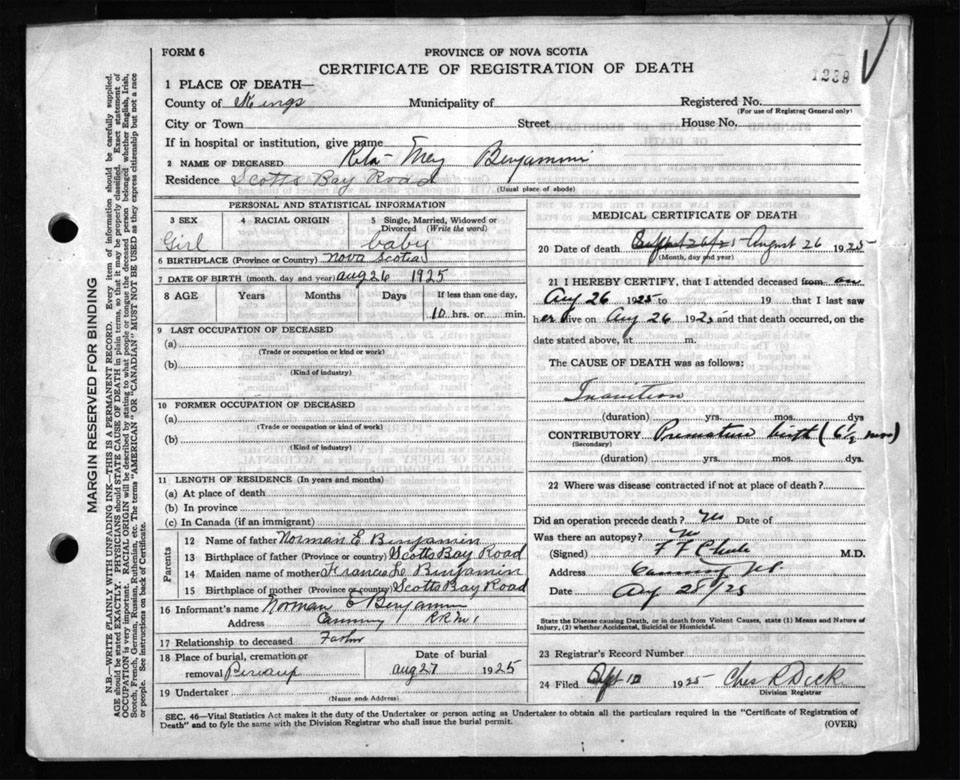 FORM 6
PROVINCE OF NOVA SCOTIA
CERTIFICATE OF REGISTRATION OF DEATH
1239
1 PLACE OF DEATH—
County of Kings Municipality of Registered No.
(For use of Registrar General only)
City or Town Street House No.
If in hospital or institution, give name
2 NAME OF DECEASED Rita May Benjamin
Residence Scotts Bay Road
(Usual place of abode)
PERSONAL AND STATISTICAL INFORMATION
3 SEX 4 RACIAL ORIGIN 5 Single, Married, Widowed or Divorced (Write the word)
Girl baby
6 BIRTHPLACE (Province or Country) Nova Scotia
7 DATE OF BIRTH (month, day and year) aug 26 1925
8 AGE Years Months Days If less than one day,
10 hrs. or min.
9 LAST OCCUPATION OF DECEASED
(a)
(Trade or occupation or kind or work)
(b)
(Kind of industry)
10 FORMER OCCUPATION OF DECEASED
(a)
(Trade or occupation or kind of work)
(b)
(Kind of industry)
11 LENGTH OF RESIDENCE (In years and months)
(a) At place of death
(b) In province
(c) In Canada (if an immigrant)
Parents
12 Name of father Norman E. Benjamin
13 Birthplace of father (Province or country) Scotts Bay Road
14 Maiden name of mother Francis Benjamin
15 Birthplace of mother (Province or country) Scotts Bay Road
16 Informant's name Norman E Benjamin
Address Canning R R No 1
17 Relationship to deceased Father
18 Place of burial, cremation or removal Date of burial
aug 27 1925
19 Undertaker
(Name and Address)
MEDICAL CERTIFICATE OF DEATH
20 Date of death August 26 1925
(Month, day and year)
21 I HEREBY CERTIFY, that I attended deceased from on
Aug 26 1925 to 19 that I last saw
her alive on Aug 26 1925 and that death occurred, on the
date stated above, at m.
The CAUSE OF DEATH was as follows:
Inanition
(duration) yrs. mos. dys
CONTRIBUTORY Premature birth (6½ mos)
(Secondary)
(duration) yrs. mos. dys.
22 Where was disease contracted if not at place of death?
Did an operation precede death? No Date of
Was there an autopsy? No
(Signed) F F Chute M.D.
Address Canning NS
Date Aug 28/25
State the Disease causing Death, or in death from Violent Causes, state (1) Means and Nature of Injury, (2) whether Accidental, Suicidal or Homicidal.
23 Registrar's Record Number
24 Filed Sept 10 1925 Chas R Dick
Division Registrar
SEC. 46—Vital Statistics Act makes it the duty of the Undertaker or person acting as Undertaker to obtain all the particulars required in the "Certificate of Registration of
Death" and to fyle the same with the Division Registrar who shall issue the burial permit.
(OVER)
MARGIN RESERVED FOR BINDING
N.B.—WRITE PLAINLY WITH UNFADING INK—THIS IS A PERMANENT RECORD. Every item of information should be carefully supplied.
AGE should be stated EXACTLY. PHYSICIANS should STATE CAUSE OF DEATH in plain terms, so that it may be properly classified. Exact statement of
OCCUPATION is very important. RACIAL ORIGIN will be described by stating to what people or tongue the deceased person belonged whether English, Irish,
Scotch, French, German, Russian, Ruthenian, etc. The terms "AMERICAN" OR "CANADIAN" MUST NOT BE USED as they express citizenship but not a race
or people. See instructions on back of Certificate.